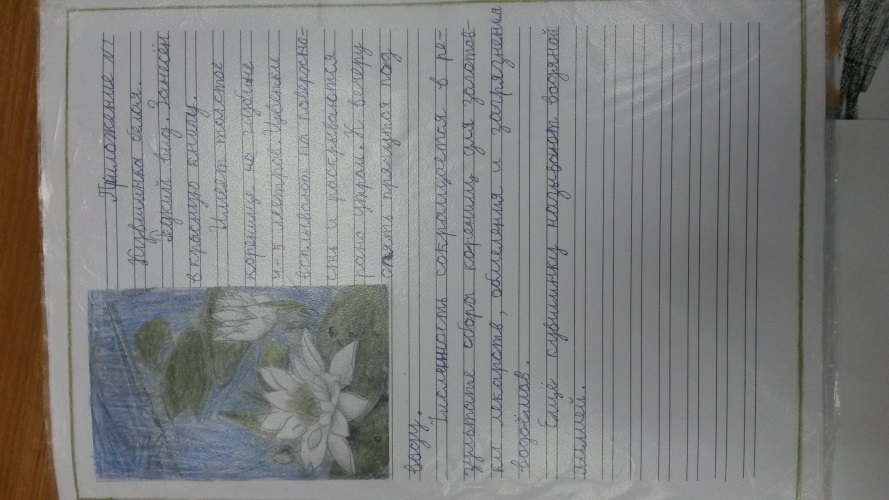 Приложение №1
Кувшинка белая.
Редкий вид. Занесён
в красную книгу.
Имеет толстое
корневище на глубине
4-5 метров. Цветки
всплывают на поверхно-
сть и раскрываются
рано утром. К вечеру
опять прячутся под
воду.
Численность сокращается в ре-
зультате сбора корневищ для заготов-
ки лекарств, обмеления и загрязнения
водоёмов.
Ещё кувшинку называют водяной
лилией.